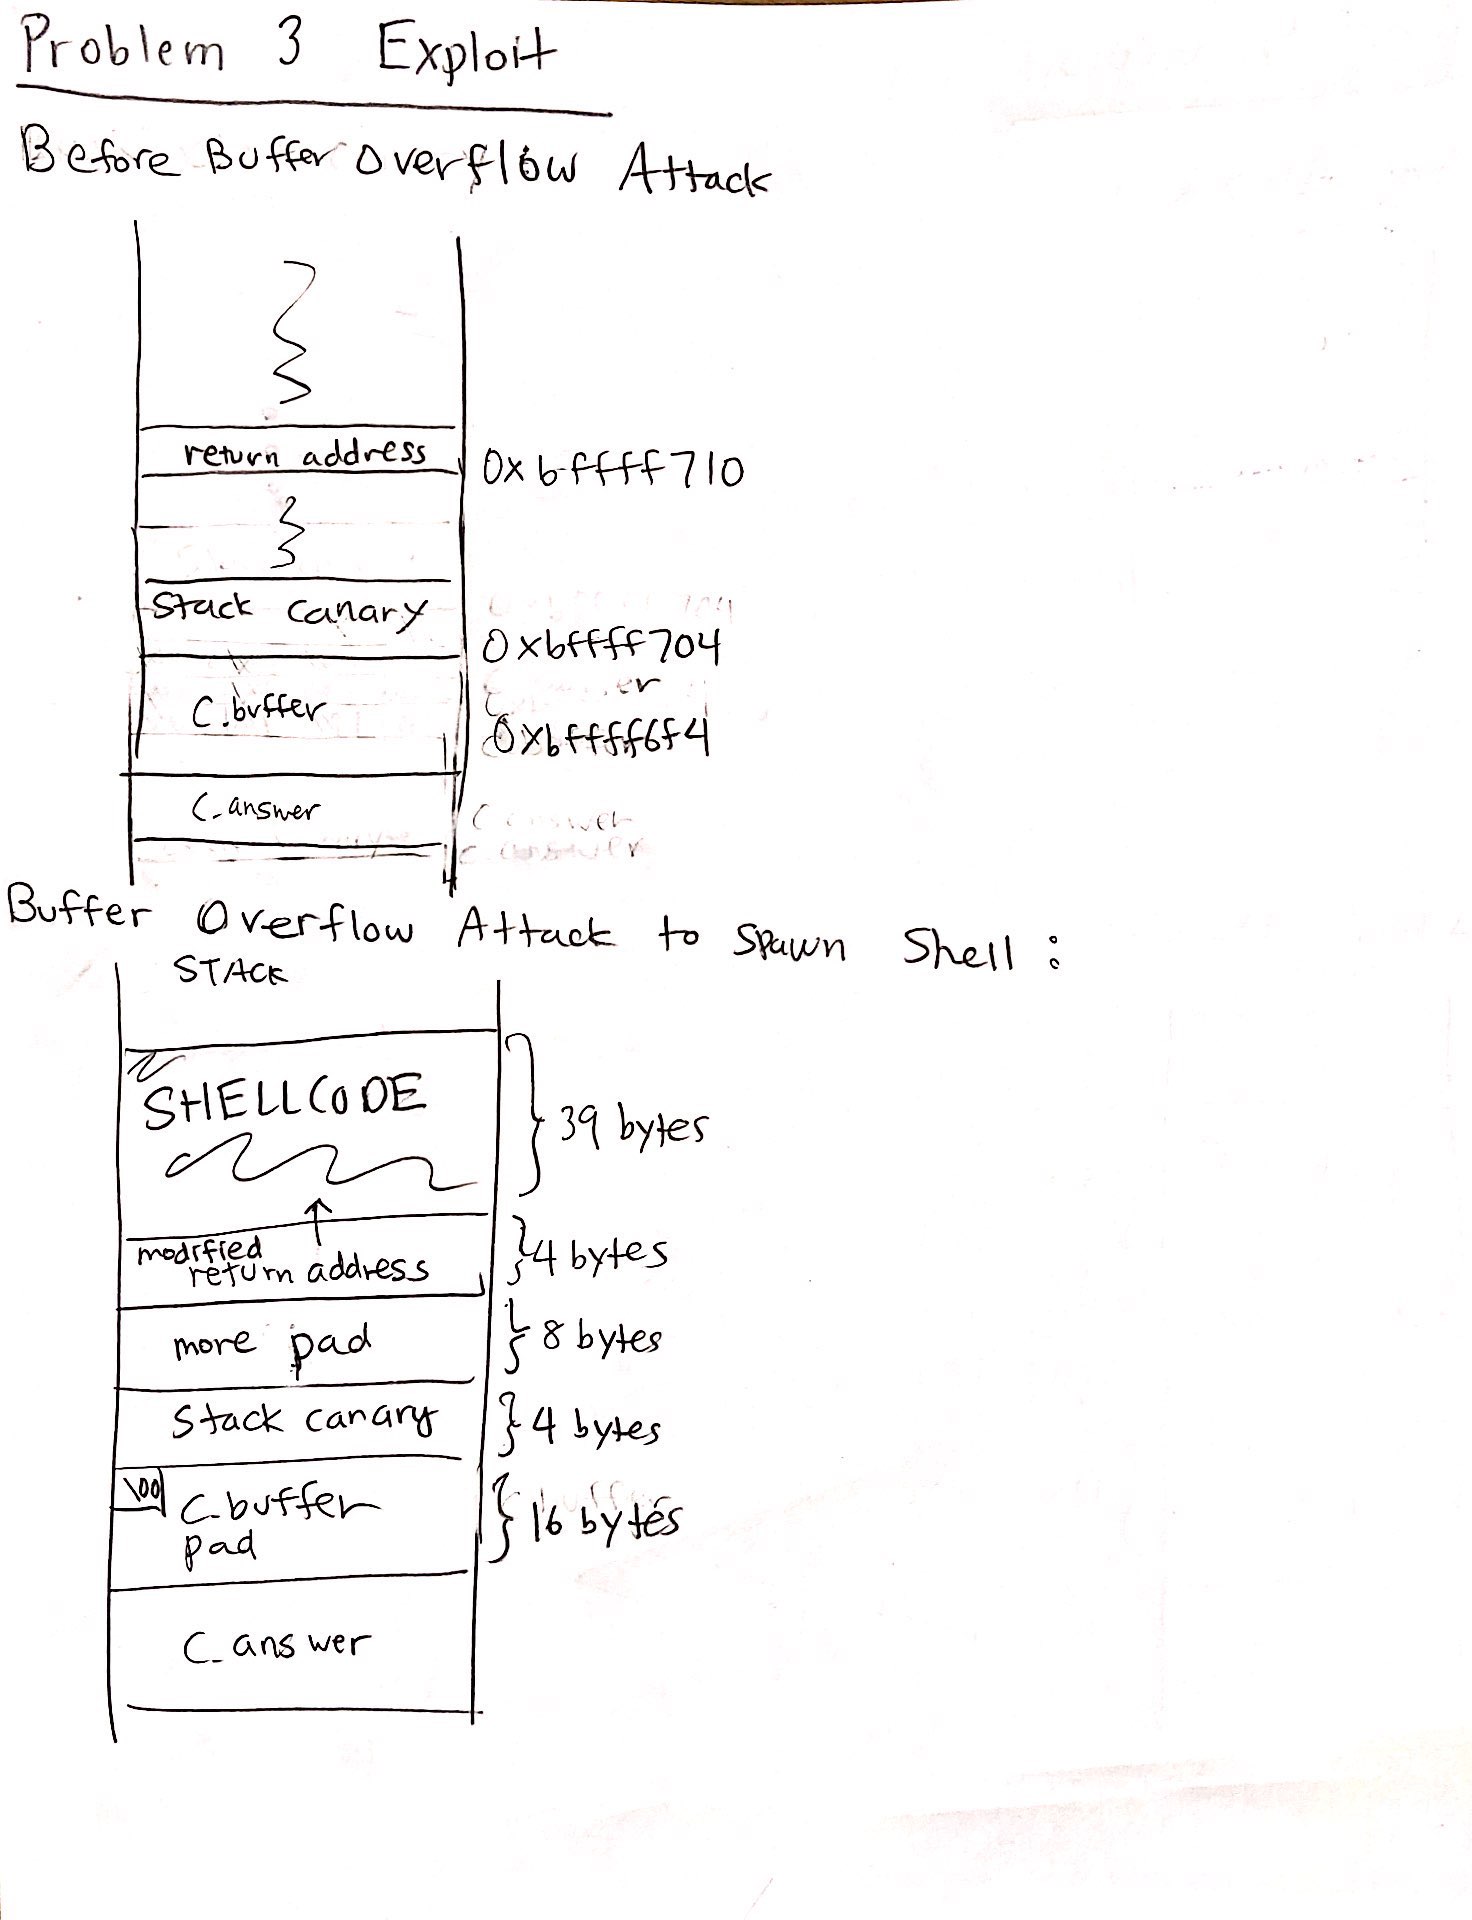 Problem 3 Exploit
Before Buffer Overflow Attack
return address 0xbffff710
Stack canary
0xbffff704
C.buffer
0xbffff6f4
C_answer
Buffer Overflow Attack to Spawn Shell:
STACK
SHELLCODE
39 bytes
modified
return address 4 bytes
more pad 8 bytes
Stack canary 4 bytes
\00 C.buffer
pad
16 bytes
C_answer